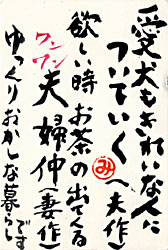 愛犬もきれいな人に
ついていく(夫作)
み
欲しい時お茶の出てくる
夫婦仲(妻作)
ワンワン
ゆっくりおかしな暮らしです